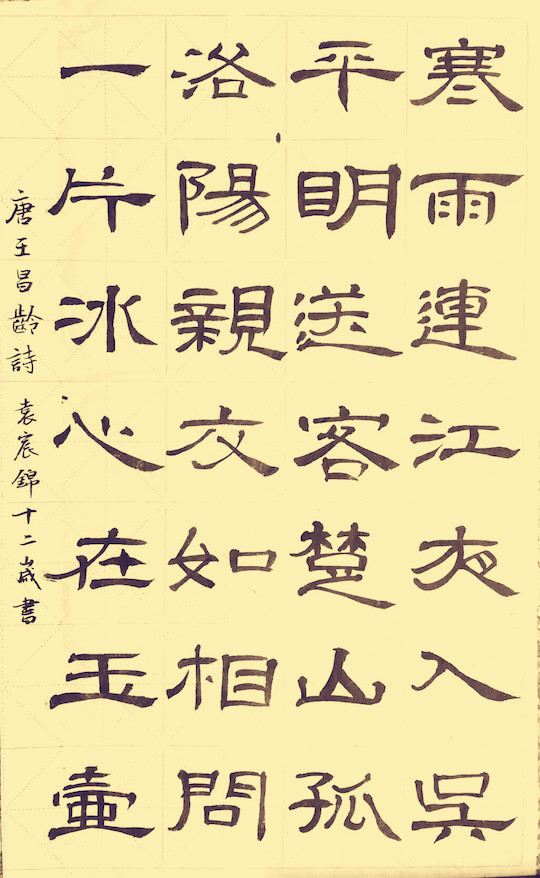 寒雨連江夜入吳
平明送客楚山孤
洛陽親友如相問
一片冰心在玉壺
唐王昌齡詩 袁宸錦十二歲書